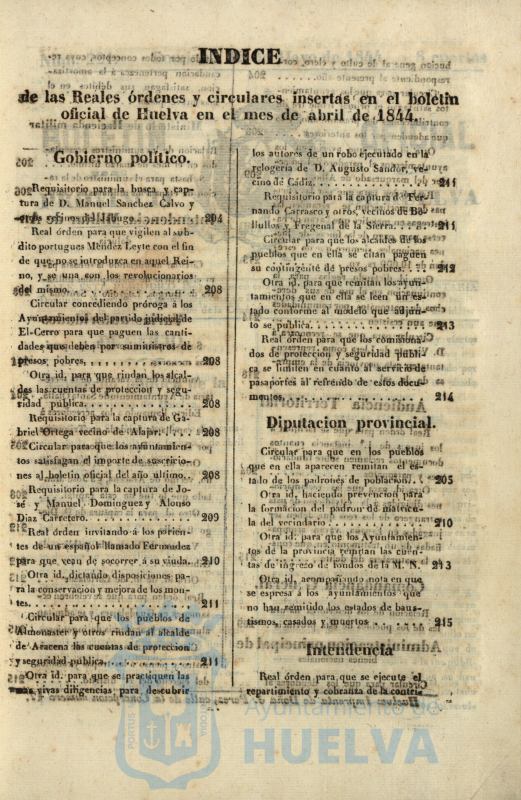 INDICE
de las Reales órdenes y circulares insertas en el boletin
oficial de Huelva en el mes de abril de 1844.
Gobierno político.
Requisitorio para la busca y cap-
tura de D. Manuel Sanchez Calvo y
204
Real órden para que vigilen al súb-
dito portugues Mendez Leyte con el fin
de que no se introduzca en aquel Rei-
no, y se una con los revolucionarios
del mismo. 208
Circular concediendo próroga á los
Ayuntamientos del partido judicial de
El-Cerro para que paguen las canti-
dades que deben por suministros de
presos pobres. 208
Otra id. para que rindan los alcal-
des las cuentas de proteccion y segu-
ridad pública. 208
Requisitorio para la captura de Ga-
briel Ortega vecino de Alajar. 208
Circular para que los ayuntamien-
tos satisfagan el importe de suscricio-
nes al boletin oficial del año último. 208
Requisitorio para la captura de Jo-
sé y Manuel Dominguez y Alonso
Diaz Carretero. 209
Real órden invitando á los parien-
tes de un español llamado Fermudez
para que vean de socorrer á su viuda. 210
Otra id. dictando disposiciones pa-
ra la conservacion y mejora de los mon-
tes. 211
Circular para que los pueblos de
Almonaster y otros rindan al alcalde
de Aracena las cuentas de proteccion
y seguridad publica. 211
Otra id. para que se practiquen las
mas vivas diligencias para descubrir
los autores de un robo ejecutado en la
relogería de D. Augusto Sandor, ve-
cino de Cádiz. 211
Requisitorio para la captura de Fer-
nando Carrasco y otros, vecinos de Bo-
llullos y Fregenal de la Sierra. 211
Circular para que los alcaldes de los
pueblos que en ella se citan paguen
su contingente de presos pobres. 212
Otra id. para que remitan los ayun-
tamientos que en ella se leen un es-
tado conforme al modelo que adjun-
to se publica. 213
Real órden para que los comisiona-
dos de proteccion y seguridad públi-
ca se limiten en cuanto al servicio de
pasaportes al refrendo de estos docu-
mentos. 214
Diputacion provincial.
Circular para que en los pueblos
que en ella aparecen remitan el es-
tado de los padrones de poblacion. 205
Otra id. haciendo prevencion para
la formacion del padron de matrícu-
la del vecindario. 210
Otra id. para que los Ayuntamien-
tos de la provincia remitan las cuen-
tas de ingreso de fondos de la M. N. 213
Otra id. acompañando nota en que
se espresa á los ayuntamientos que
no han remitido los estados de baus-
tismos, casados y muertos 215
Intendencia
Real órden para que se ejecute el
repartimiento y cobranza de la contri-
Ayuntamiento de
HUELVA
PORTUS